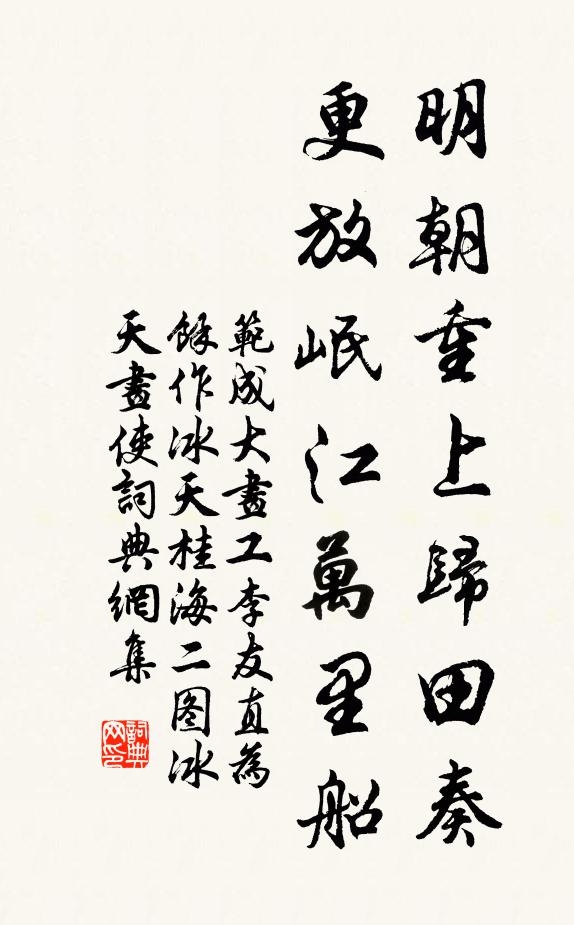 明朝重上歸田奏
更放岷江萬里船
範成大畫工李友直為
餘作冰天桂海二图冰
天畫使詞典網集
詞典网印